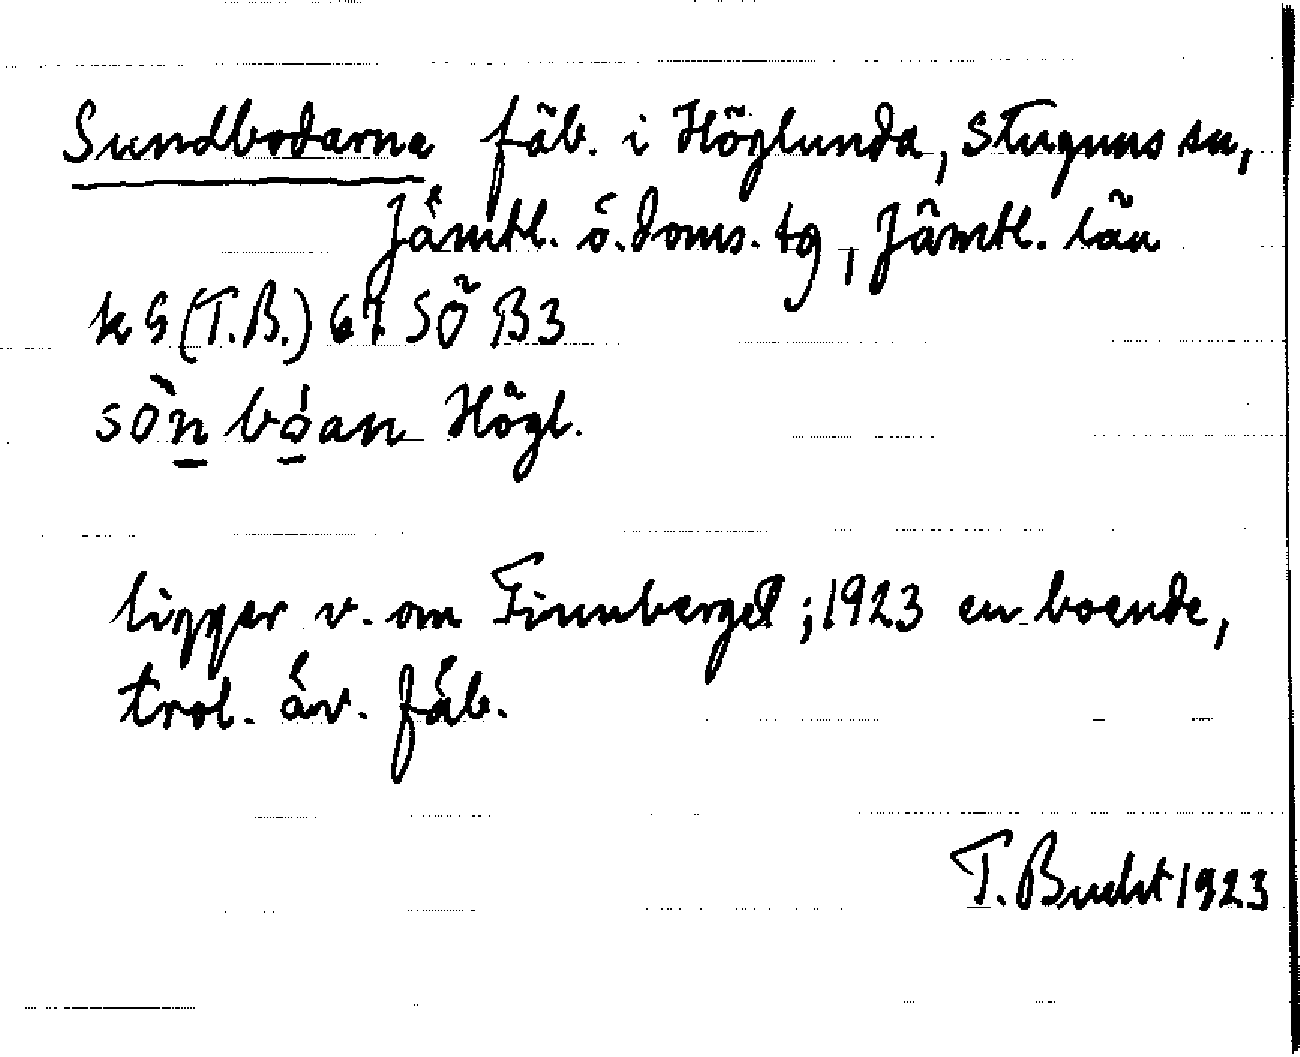 Sundbodarna fäb. i Höglunda, Stuguns sn,
Jämtl. ö. doms. tg, Jämtl. län
k G (T.B.) 67 SÖ B3
sòn bóan Högl.
ligger v. om Finnberget; 1923 en boende,
trol. äv. fäb.
T. Bucht 1923